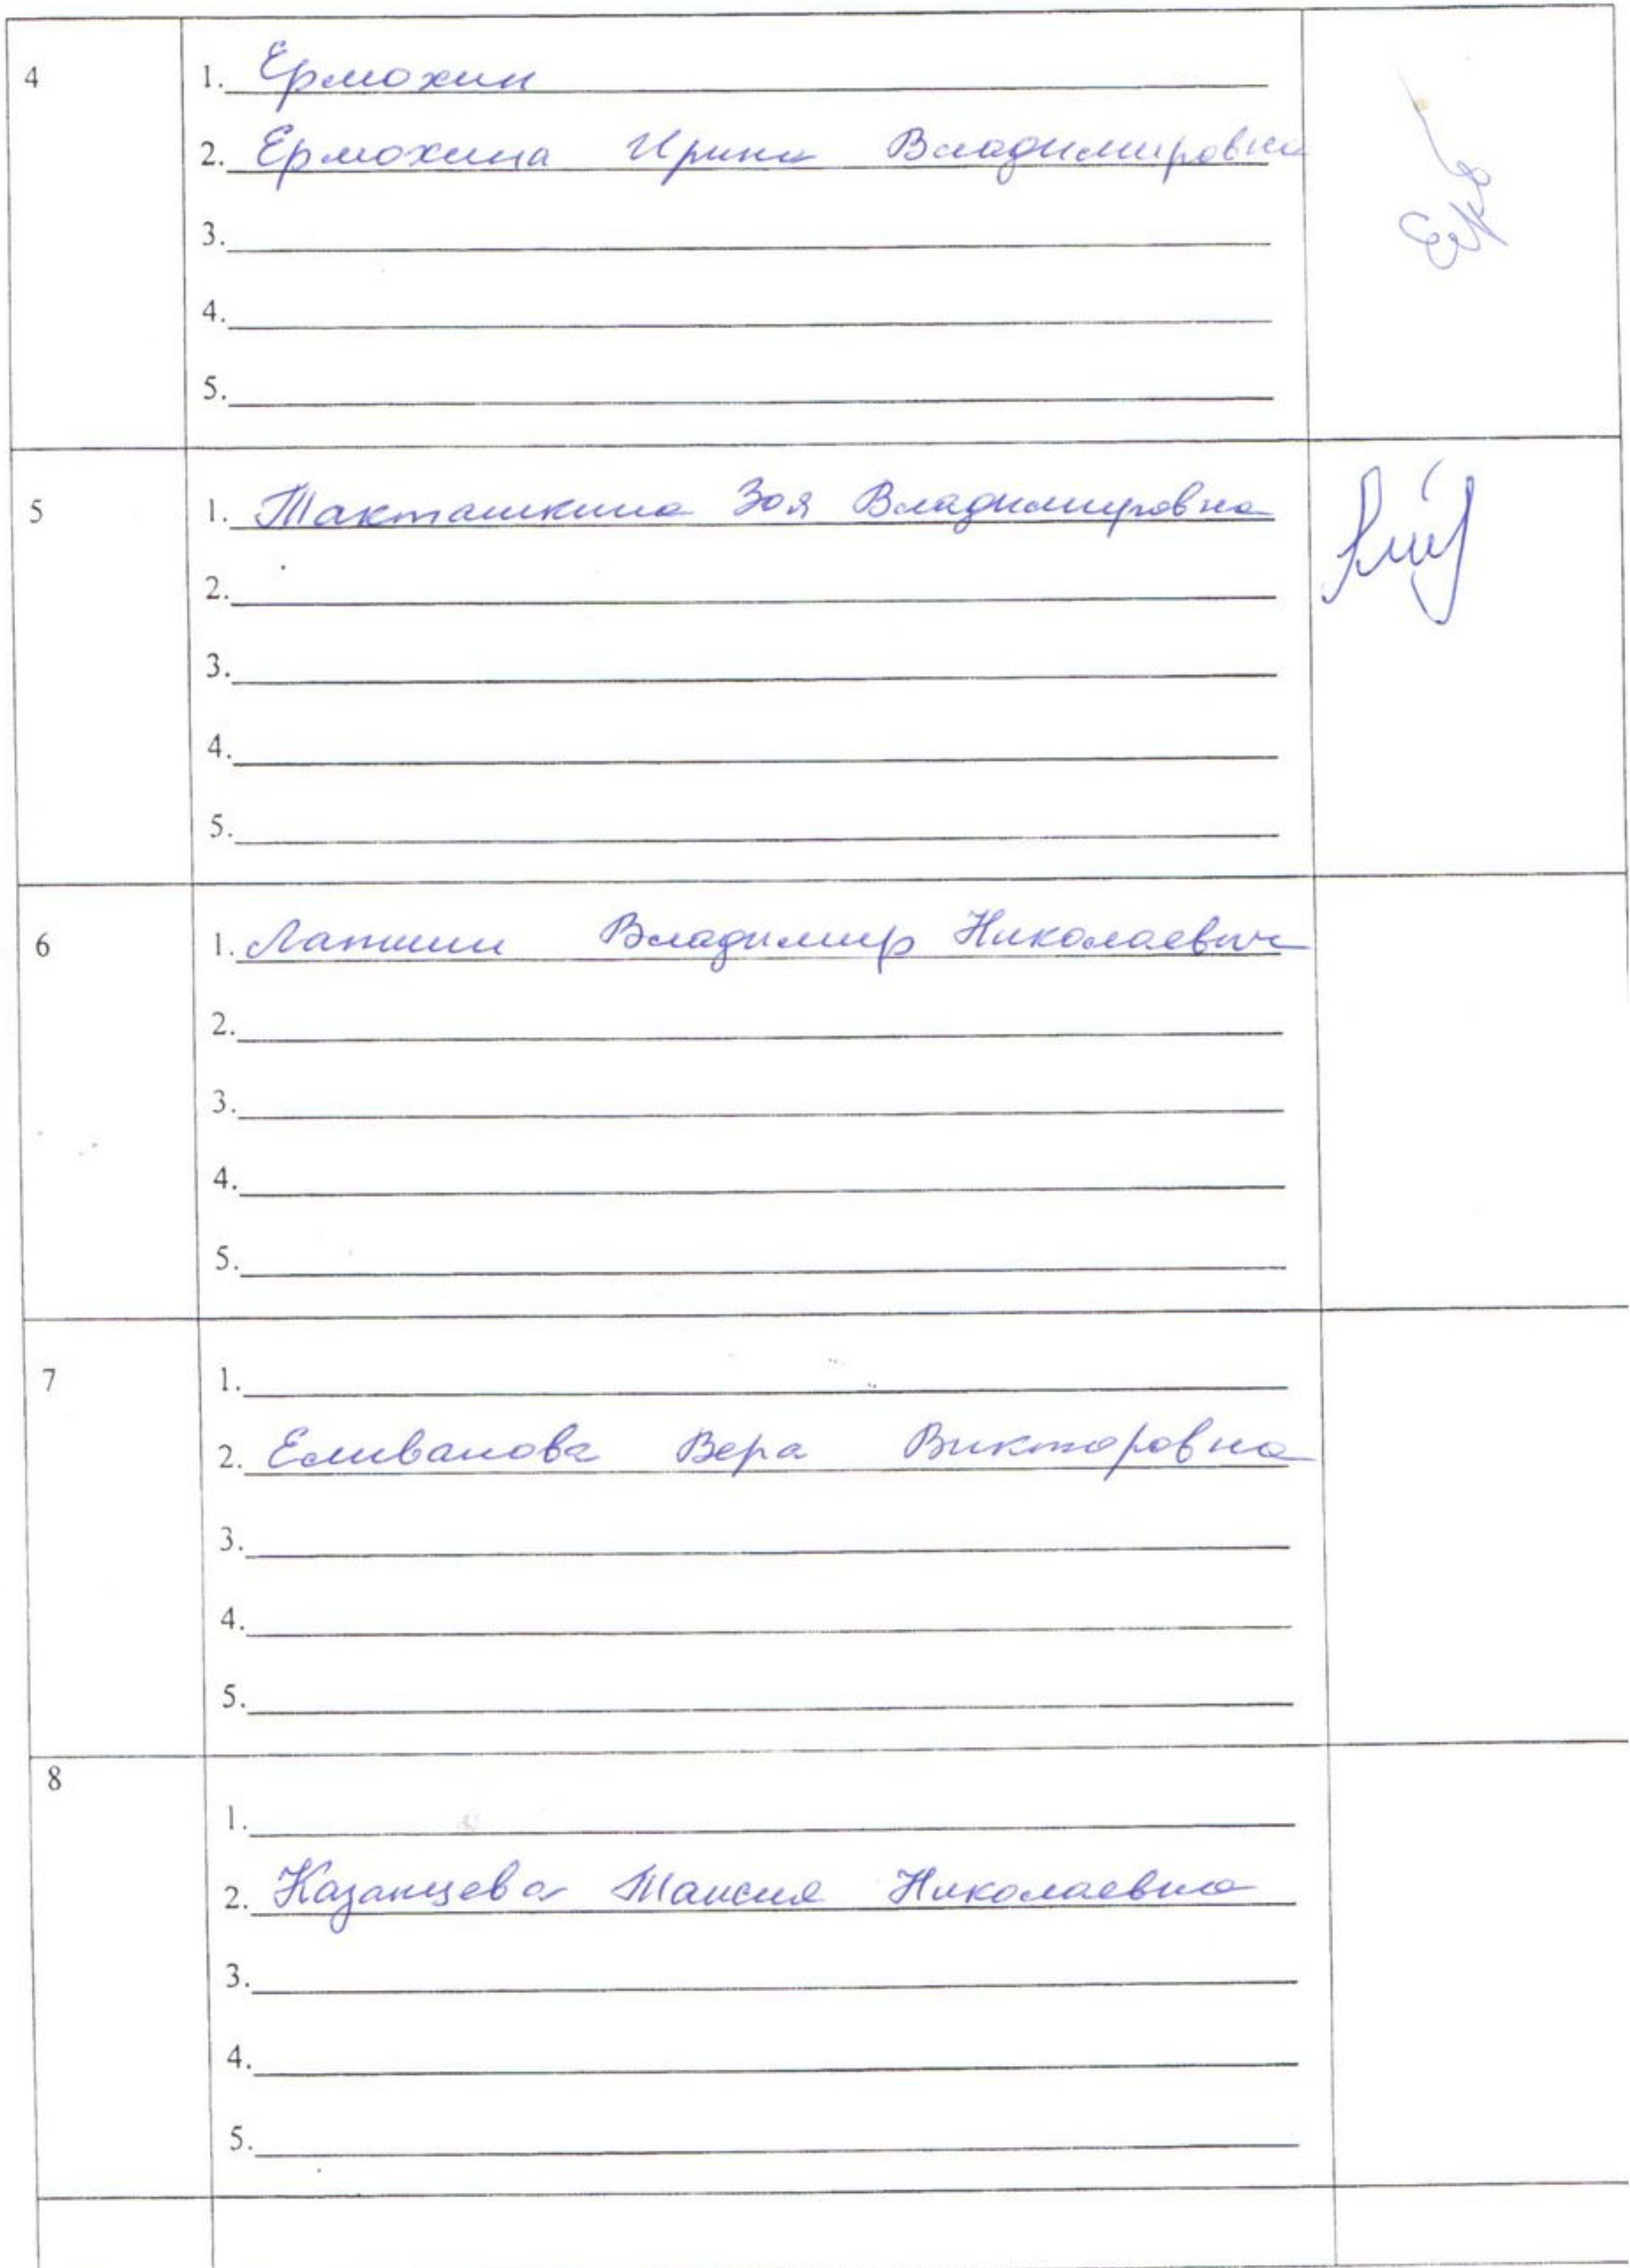 4
1. Ермохин
2. Ермохина Ирина Владимировна
3.
4.
5.
5
1. Такташкина Зоя Владимировна
2.
3.
4.
5.
6
1. Лапшин Владимир Николаевич
2.
3.
4.
5.
7
1.
2. Еливанова Вера Викторовна
3.
4.
5.
8
1.
2. Казанцева Таисия Николаевна
3.
4.
5.